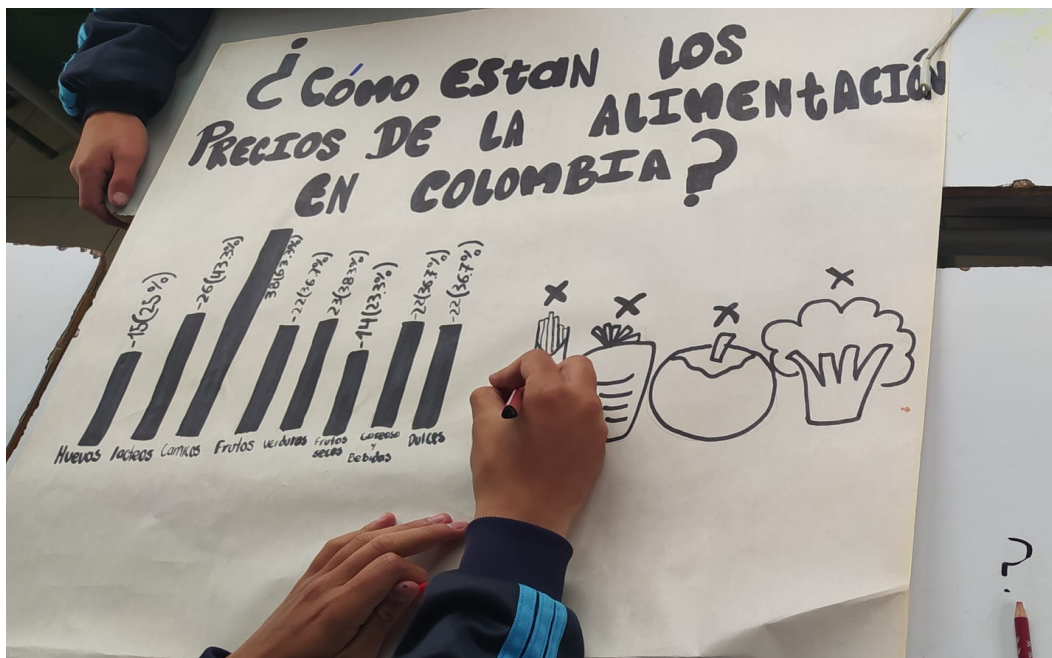 ¿Cómo EStaN LOS
PRECIOS DE LA ALIMENtACIÓN
EN COLOMBIA?
-15(25%)
-26(43.3%)
38(63.3%)
-22(36.7%)
23(38.3%)
-14(23.3%)
-22(36.7%)
-22(36.7%)
Huevos
lacteos
Carnicos
Frutos
verduras
Frutos
secos
Gaseosa
y
Bebidas
Dulces
?